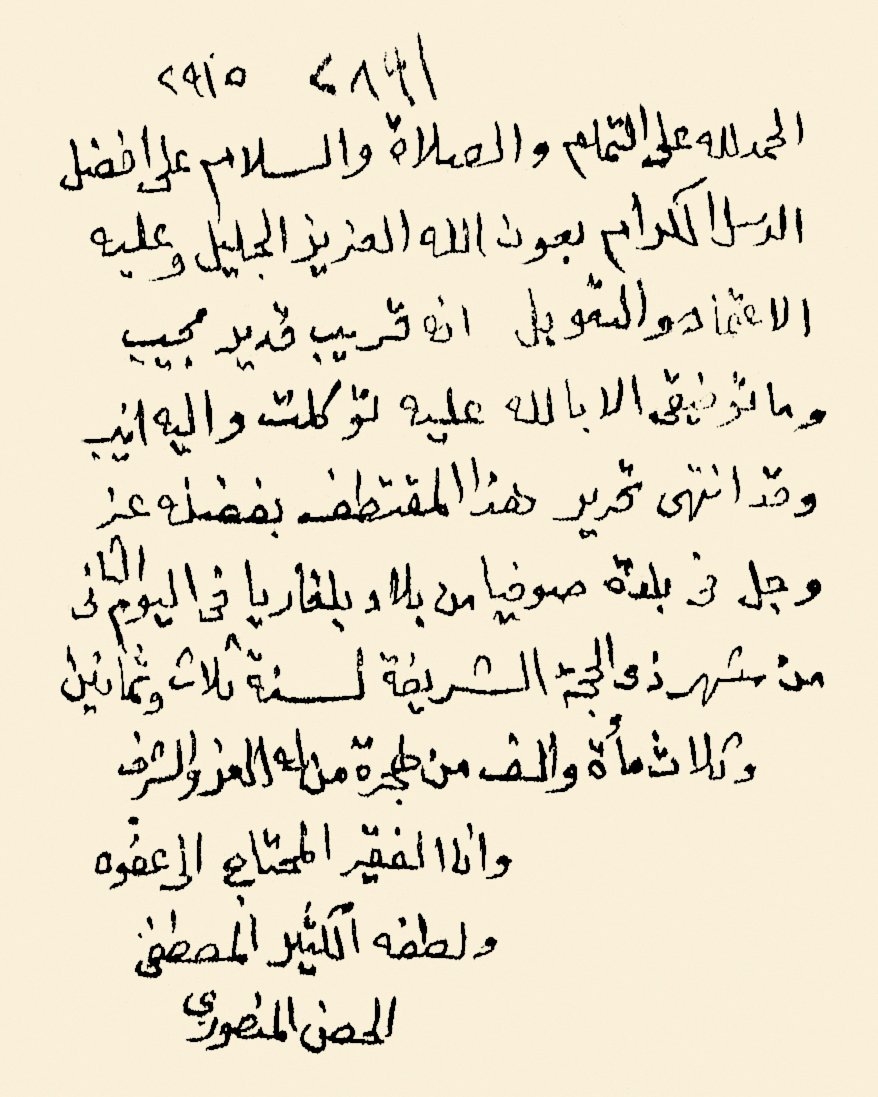 الحمد لله على التمام والصلاة والسلام على افضل
الرسل الكرام بعون الله العزيز الجليل وعليه
الاعتماد والتعويل انه قريب قدير مجيب
وما توفيقى الا بالله عليه توكلت واليه انيب
وقد انتهى تحرير هذا المقتطف بفضله عز
وجل فى بلدة صوفيا من بلاد بلغاريا فى اليوم الثانى
من شهر ذى الحجة الشريفة لسنة ثلاث وثمانين
وثلاث مأة والف من هجرة من له العز والشرف
وانا الفقير المحتاج الى عفوه
ولطفه الكثير المصطفى
الحصن المنصوري